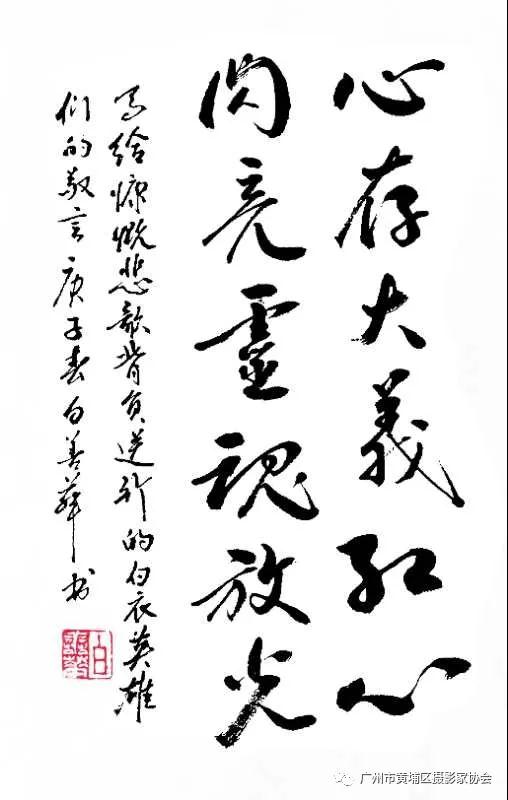 心存大義红心
闪亮靈魂放光
写给慷慨悲歌背负逆行的白衣英雄
们的敬言庚子春白善華书
广州市黄埔区摄影家协会